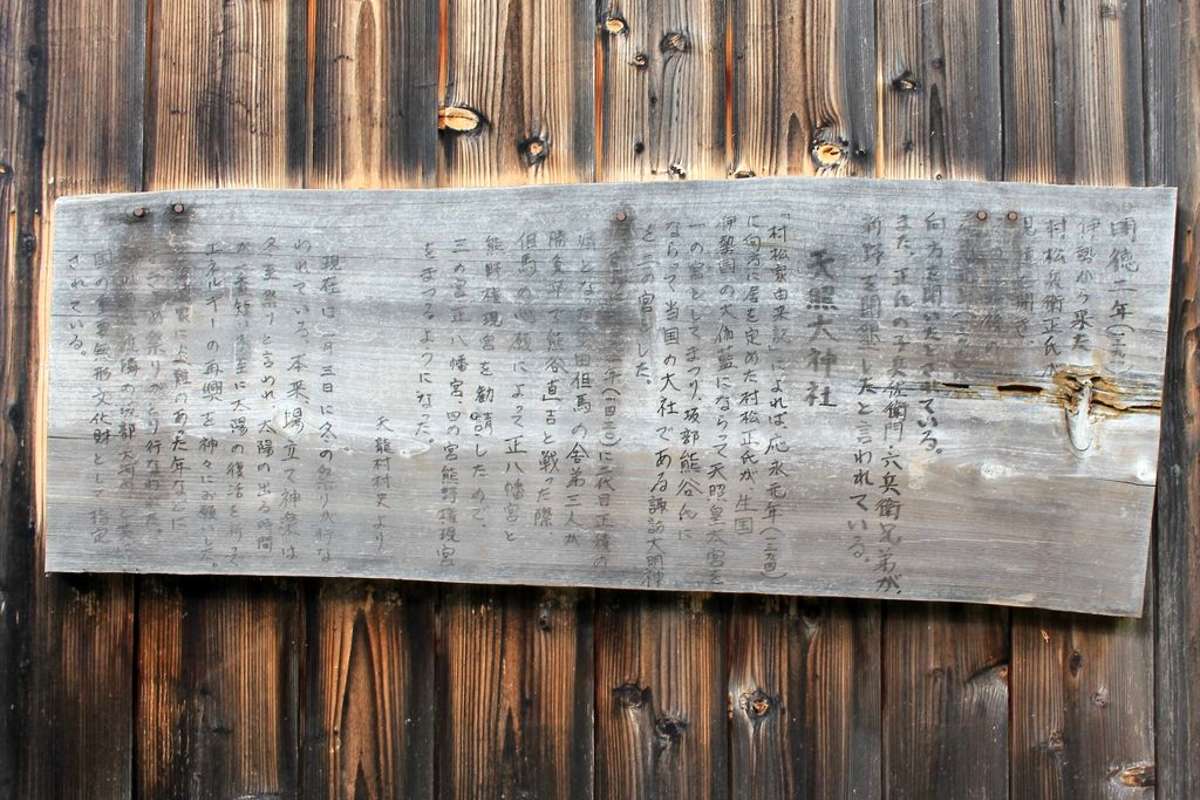 明徳二年(一三九一)
伊勢から来た
村松兵衛正氏が
向方を開いたとされている。
また、正氏の子兵佐衛門・六兵衛兄弟が、
新野を開郷したと言われている。
天照大神社
「村松家由来記」によれば、応永元年(一三九四)
に向方に居を定めた村松正氏が生国
伊勢国の大伽藍にならって天照皇太宮を
一の宮としてまつり、坂部熊谷氏に
ならって当国の大社である諏訪大明神
を二の宮とした。
年(一四二〇)に二代目正績の
婿となった多田但馬の舎弟三人が
陣負平で熊谷直吉と戦った際、
但馬の回銭によって正八幡宮と
熊野権現宮を勧請したので、
三の宮正八幡宮、四の宮熊野権現宮
をまつるようになった。
天龍村村史より
現在は一月三日に冬の祭りが行な
われている。本来、場立て神楽は
冬至祭りと言われ、太陽の出る時間
が一番短い冬至に太陽の復活を祈って
エネルギーの再興を神々にお願いした。
により難のあった年などに
祭りがとり行なわれた。
隣の坂部大河内と共に
国の重要無形文化財として指定
されている。